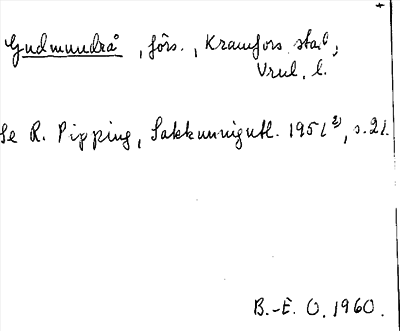 Gudmundrå, förs., Kramfors stad,
Se R. Pipping, Sakkunnigutl. 1951 2), s. 21.
B.-E. O. 1960.